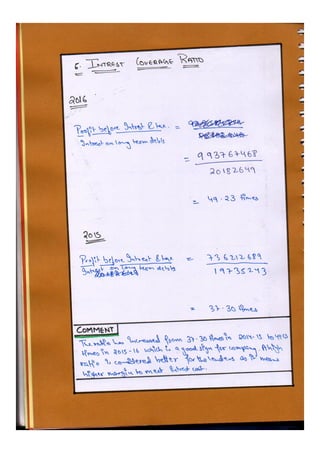 6. INTREST COVERAGE RATIO
2016
Profit before Intrest & tax. =
Intrest on long term debts
= 993767468
20182649
= 49.23 times
2015
Profit before Intrest & tax = 736212689
Intrest on long term debts 19735243
= 37.30 times
COMMENT
The ratio has Increased from 37.30 times in 2014-15 to 49.23
times in 2015-16 which is a good sign for company. A high
ratio is considered better for the lenders as it means
higher margin to meet Intrest cost.